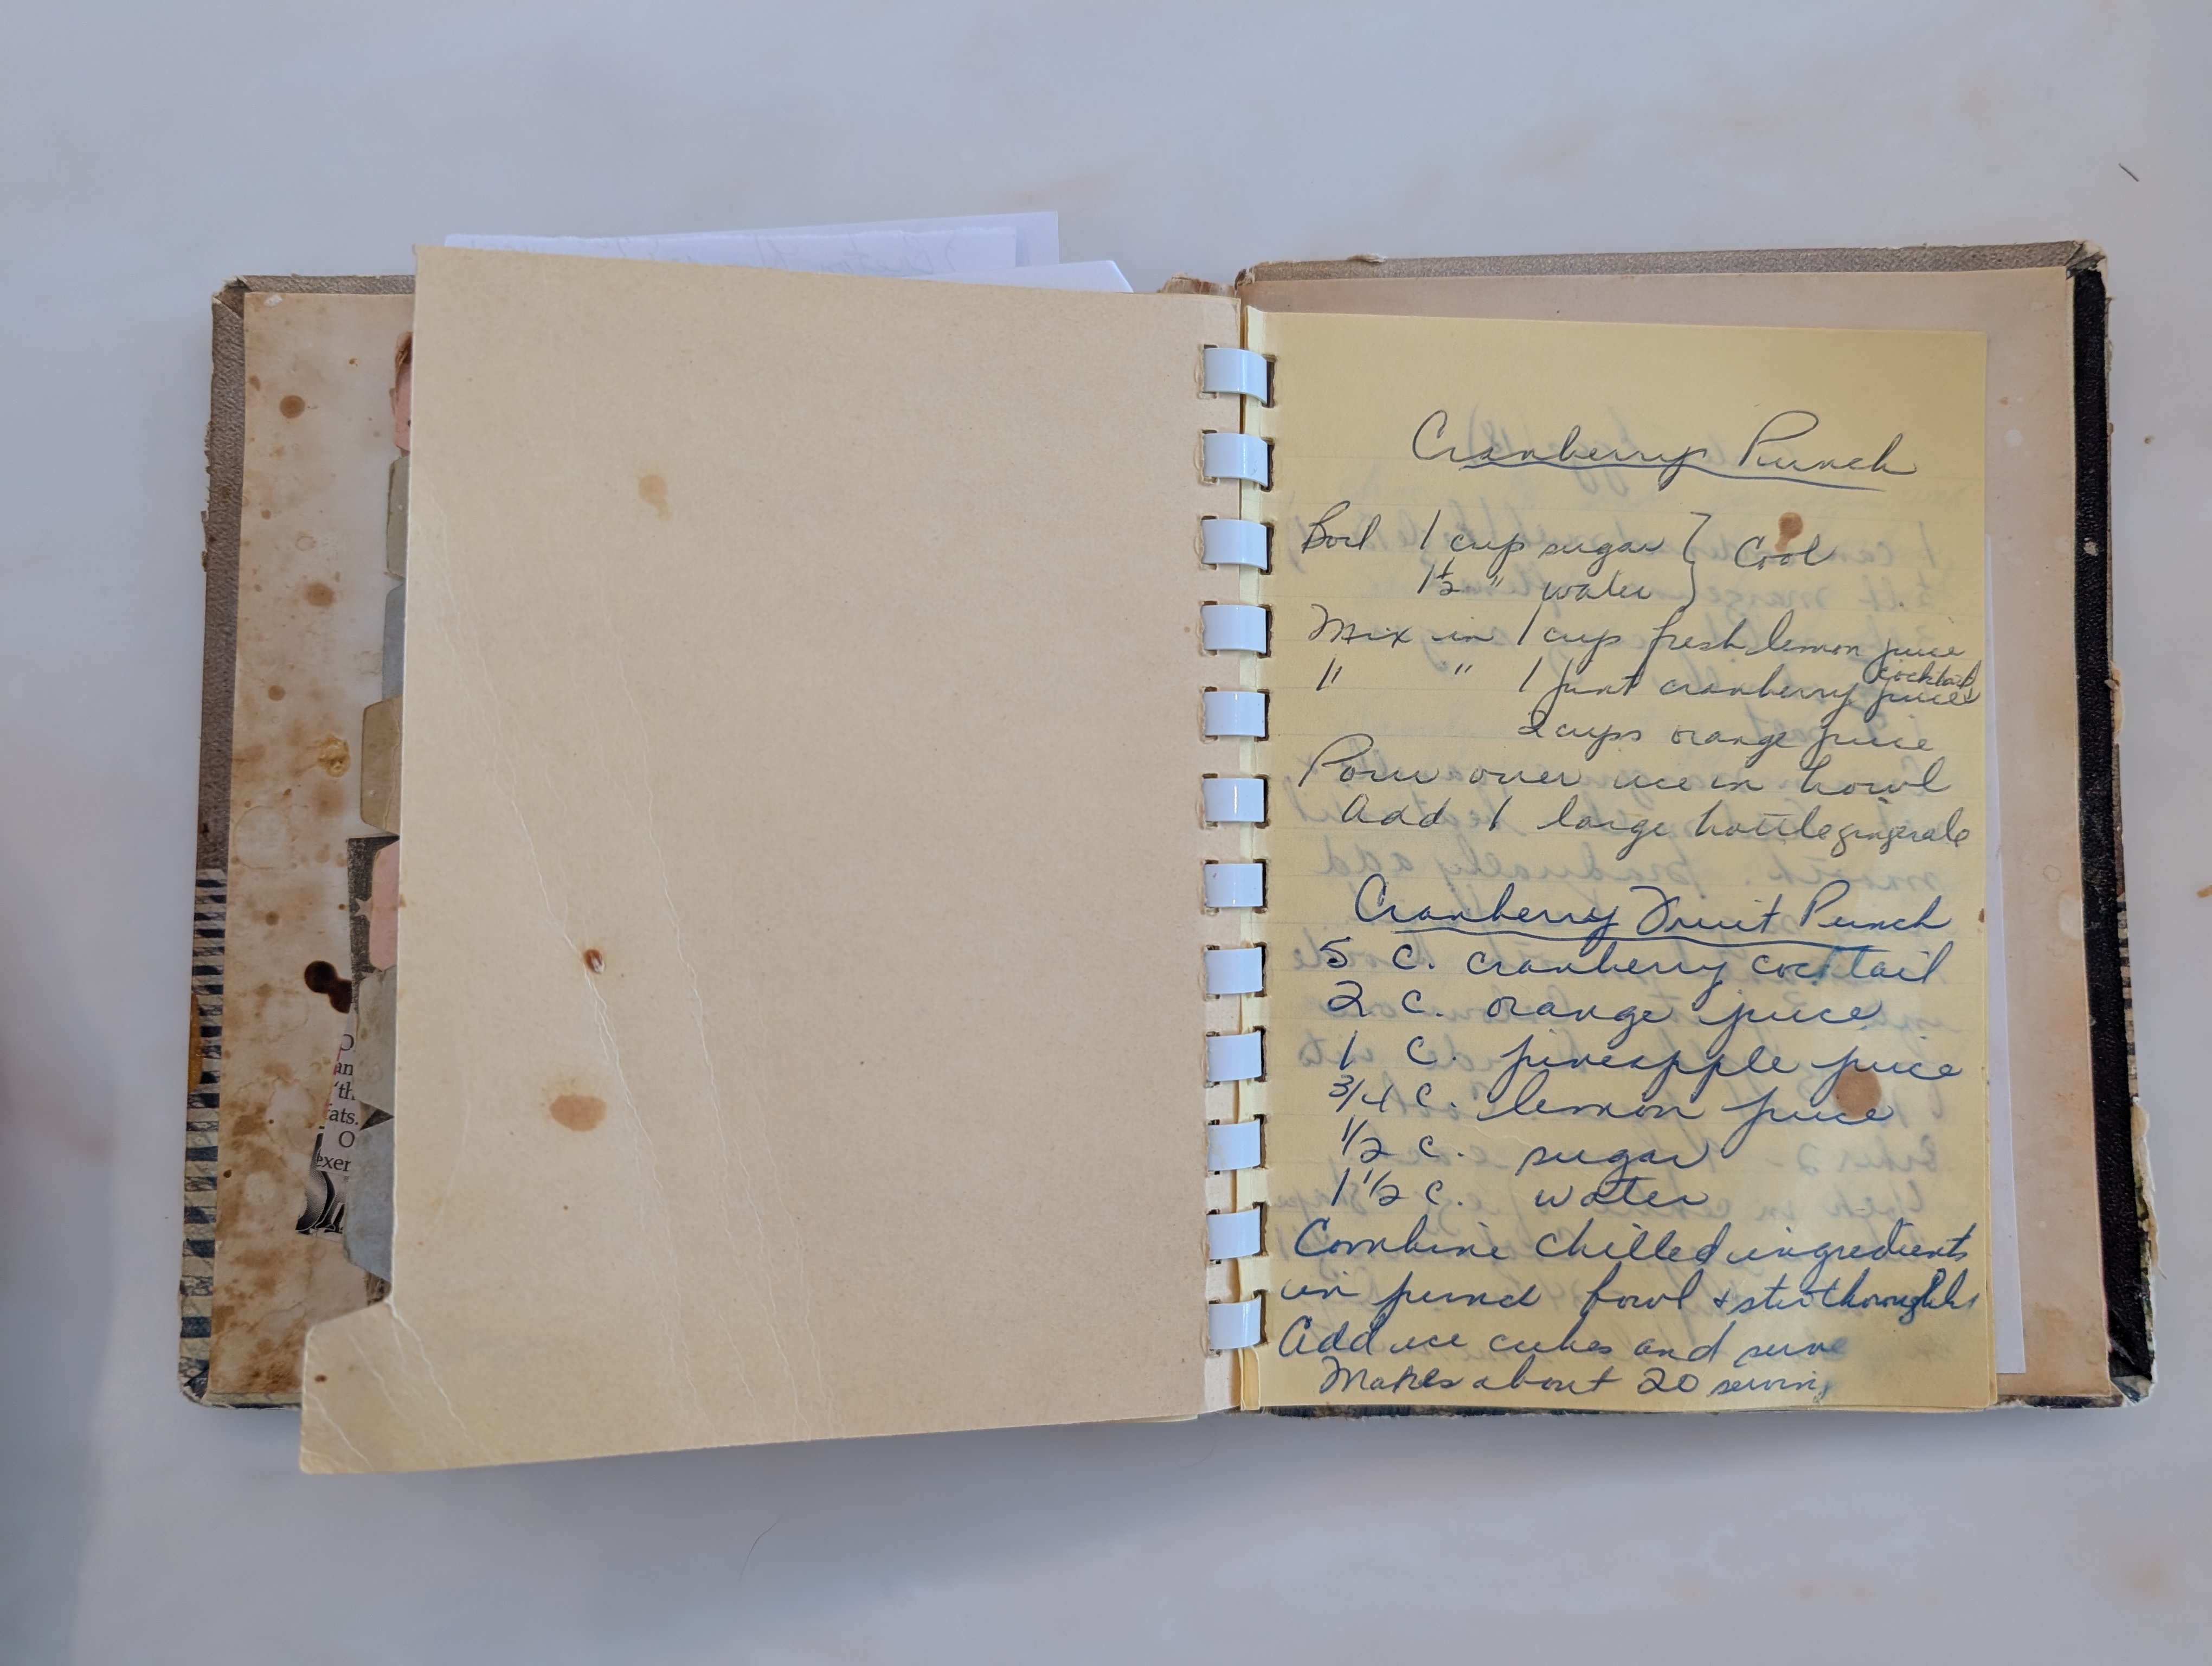 O
an
'th
ats.
O
exer
Cranberry Punch
Boil 1 cup sugar } Cool
1½ " water
Mix in 1 cup fresh lemon juice
" " 1 pint cranberry juice cocktail
2 cups orange juice
Pour over ice in bowl
Add 1 large bottle gingerale
Cranberry Fruit Punch
5 C. cranberry cocktail
2 C. orange juice
1 C. pineapple juice
3/4 C. lemon juice
1/2 C. sugar
1 1/2 C. water
Combine chilled ingredients
in punch bowl + stir thoroughly
Add ice cubes and serve
Makes about 20 serving